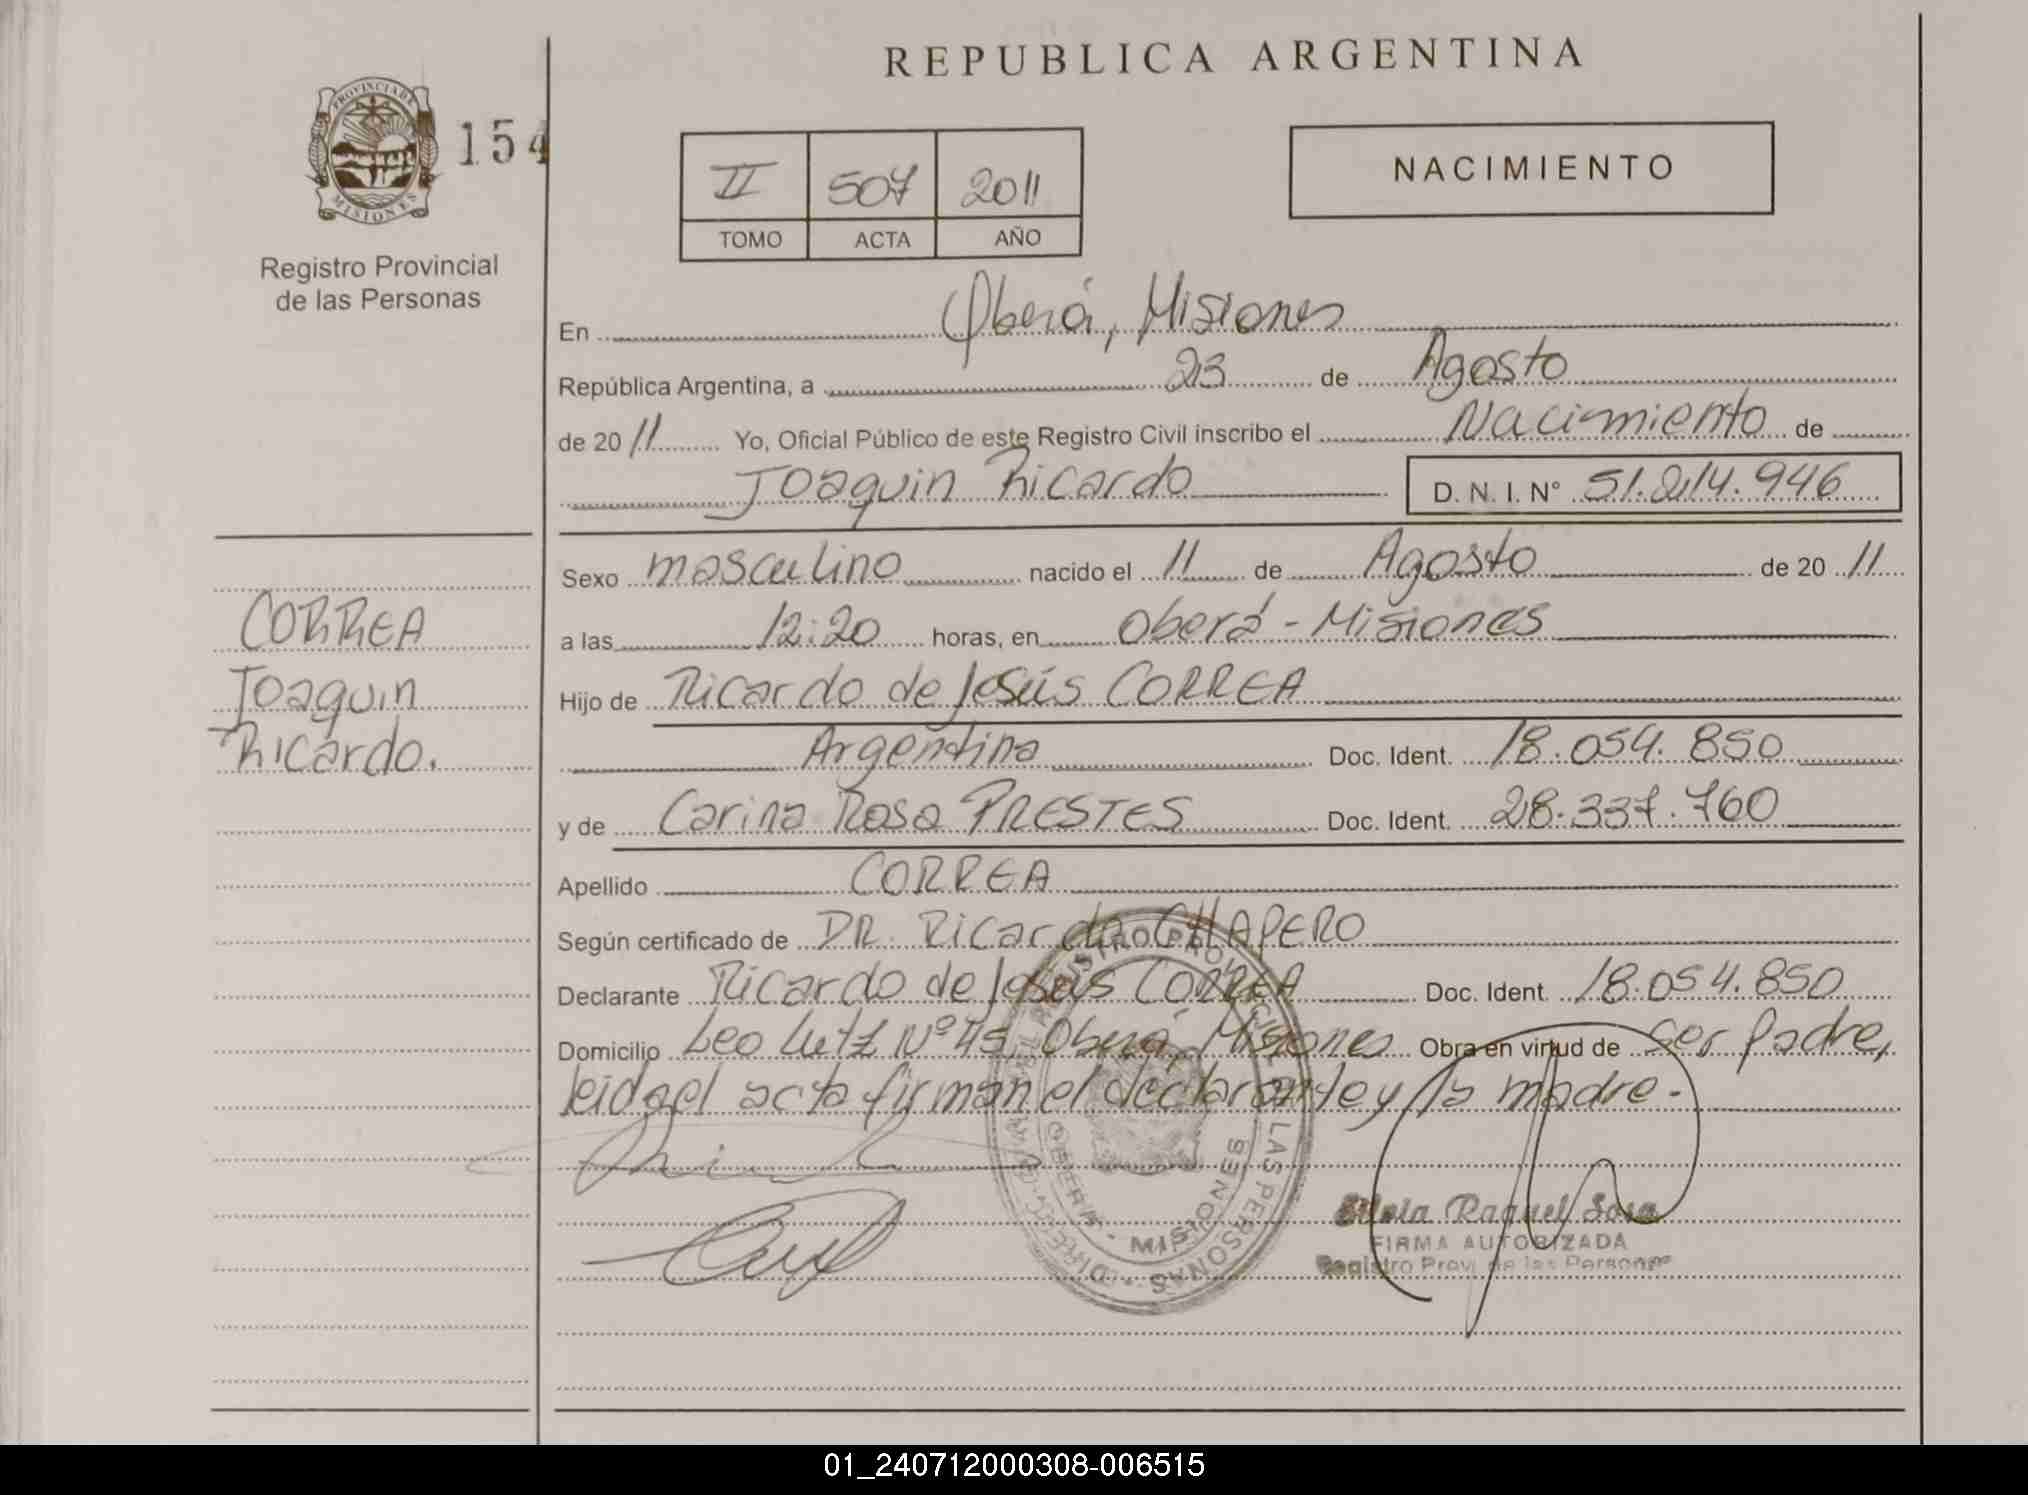 REPUBLICA ARGENTINA
PROVINCIA DE
MISIONES
154
Registro Provincial
de las Personas
II 507 2011
TOMO ACTA AÑO
NACIMIENTO
En Oberá, Misiones
República Argentina, a 23 de Agosto
de 2011 Yo, Oficial Público de este Registro Civil inscribo el Nacimiento de
Joaquin Ricardo D. N. I. N° 51.214.946
Sexo masculino nacido el 11 de Agosto de 2011
a las 12:20 horas, en Oberá - Misiones
Hijo de Ricardo de Jesús CORREA
Argentina Doc. Ident. 18.054.850
y de Carina Rosa PRESTES Doc. Ident. 28.337.760
Apellido CORREA
Según certificado de DR. Ricardo CHAPERO
Declarante Ricardo de Jesús CORREA Doc. Ident. 18.054.850
Domicilio Leo Lutz Nº 45, Oberá, Misiones Obra en virtud de ser padre,
leida el acta firman el declarante y la madre.-
CORREA
Joaquin
Ricardo.
LAS PERSONAS
MISIONES
Silvia Raquel Sosa
FIRMA AUTORIZADA
Registro Prov. de las Personas
01_240712000308-006515